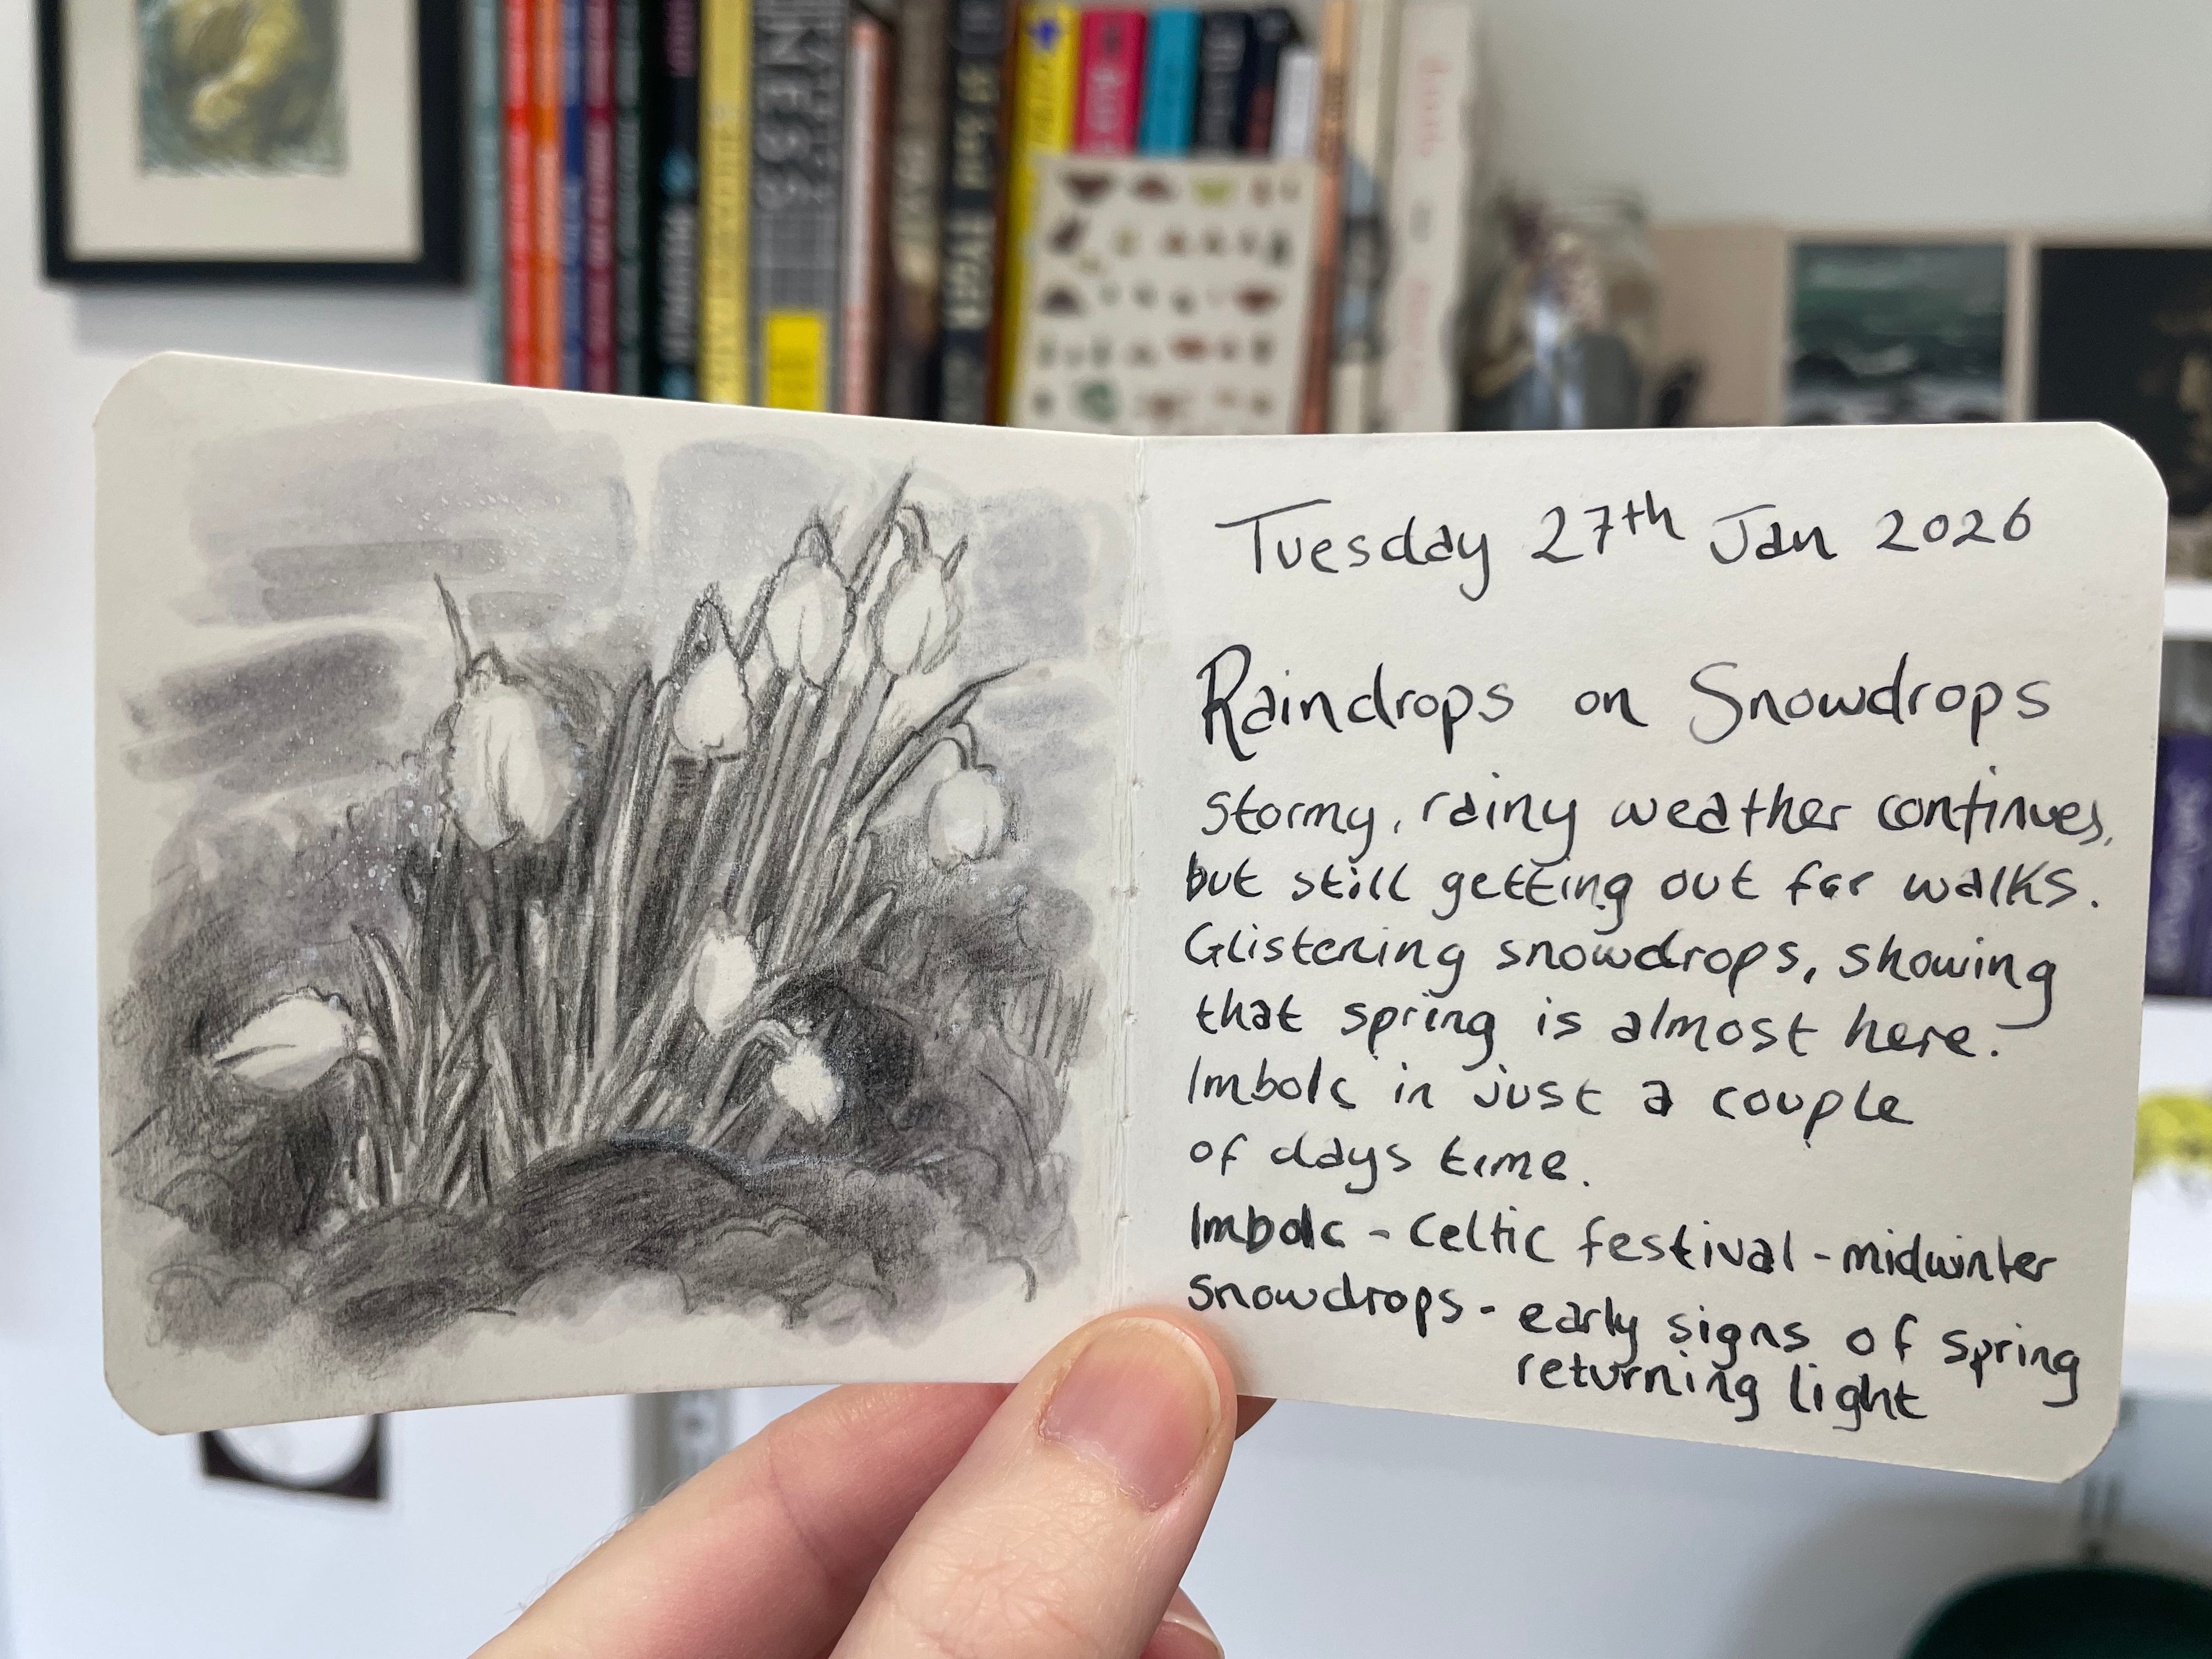 NESS
TYGER
Tuesday 27th Jan 2026
Raindrops on Snowdrops
Stormy, rainy weather continues,
but still getting out for walks.
Glistening snowdrops, showing
that spring is almost here.
Imbolc in just a couple
of days time.
Imbolc - Celtic festival - midwinter
snowdrops - early signs of spring
returning light